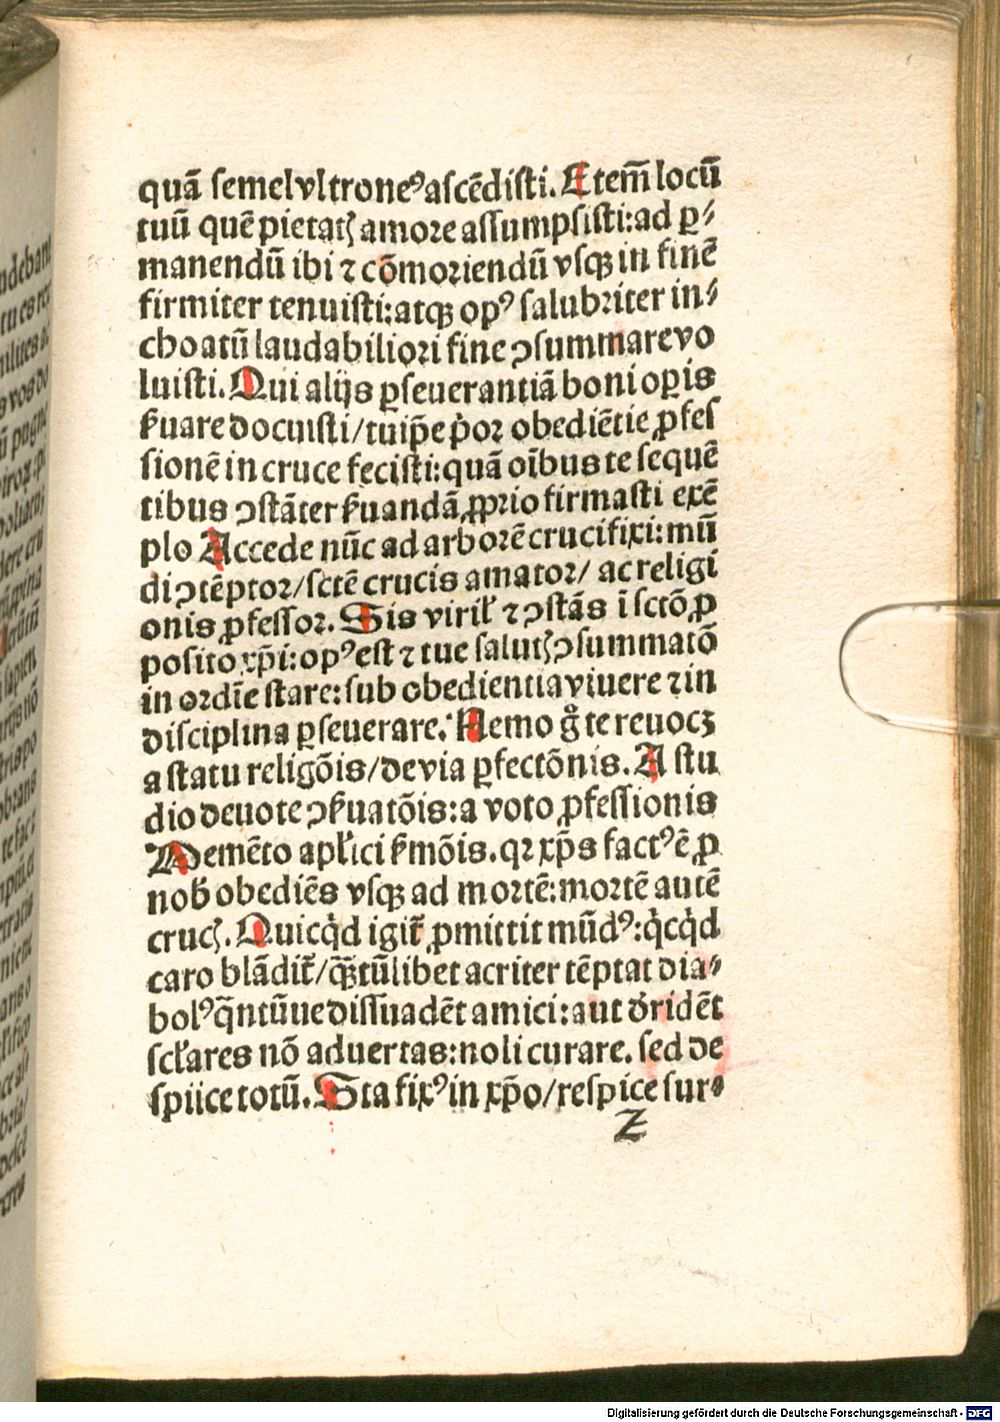 quã semel vltroneꝰ ascẽdisti. Etem̃ locũ
tuũ quẽ pietatꝭ amore assumpsisti: ad ꝑ⸗
manendũ ibi ⁊ cõmoriendũ vsqꝫ in finẽ
firmiter tenuisti: atqꝫ opꝰ salubriter in⸗
choatũ laudabiliori fine ꝯsummare vo
luisti. Qui alijs ꝑseuerantiã boni oꝑis
ẜuare docuisti/ tuip̃e p̓or obediẽtie ꝓfes
sionẽ in cruce fecisti: quã oĩbus te sequẽ
tibus ꝯstãter ẜuandã ꝓprio firmasti exẽ
plo Accede nũc ad arborẽ crucifixi: mũ
di ꝯtẽptor/ sctẽ crucis amator/ ac religi
onis ꝓfessor. Sis viril̓ ⁊ ꝯstãs ĩ sctõ ꝓ
posito xp̃i: opꝰ est ⁊ tue salutꝭ ꝯsummatõ
in ordĩe stare: sub obedientia viuere ⁊ in
disciplina ꝑseuerare. Nemo g̊ te reuocꝫ
a statu religõis/ de via ꝑfectõnis. A stu
dio deuote ꝯẜuatõis: a voto ꝓfessionis
Memẽto apl̓ici ẜmõis. qꝛ xp̃s factꝰ ẽ ꝓ
nob̓ obediẽs vsqꝫ ad mortẽ: mortẽ autẽ
crucꝭ. Quicq̓d igit̃ ꝓmittit mũdꝰ: q̓cq̓d
caro blãdit̃/ qꝫ̃tũlibet acriter tẽptat dia⸗
bolꝰ q̃ntũue dissuadẽt amici: aut d̓ridẽt
scl̓ares nõ aduertas: noli curare. sed de
spiice totũ. Sta fixꝰ in xp̃o/ respice sur⸗
z
Digitalisierung gefördert durch die Deutsche Forschungsgemeinschaft - DFG